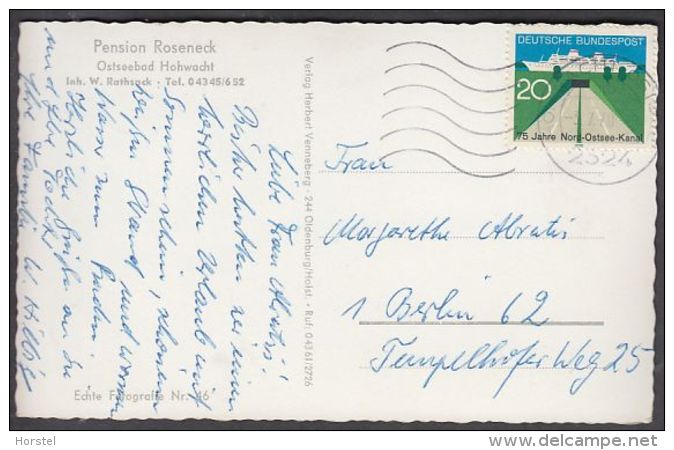 Pension Roseneck
Ostseebad Hohwacht
Inh. W. Rathsack · Tel. 04345/652
Liebe Frau Abratis!
Bisher hatten wir einen
herrlichen Urlaub mit
Sonnenschein, schönem
heißen Strand und warmem
zum Baden.
Herzliche Grüße an Sie
und Ihre Tochter
Ihre Familie W.
Echte Fotografie Nr. 46
Verlag Herbert Venneberg · 244 Oldenburg/Holst. · Ruf: 04361/2726
DEUTSCHE BUNDESPOST
20
75 Jahre Nord-Ostsee-Kanal
2324
Frau
Margarethe Abratis
1 Berlin 62
Tempelhofer Weg 25
Horstel
www.delcampe.net